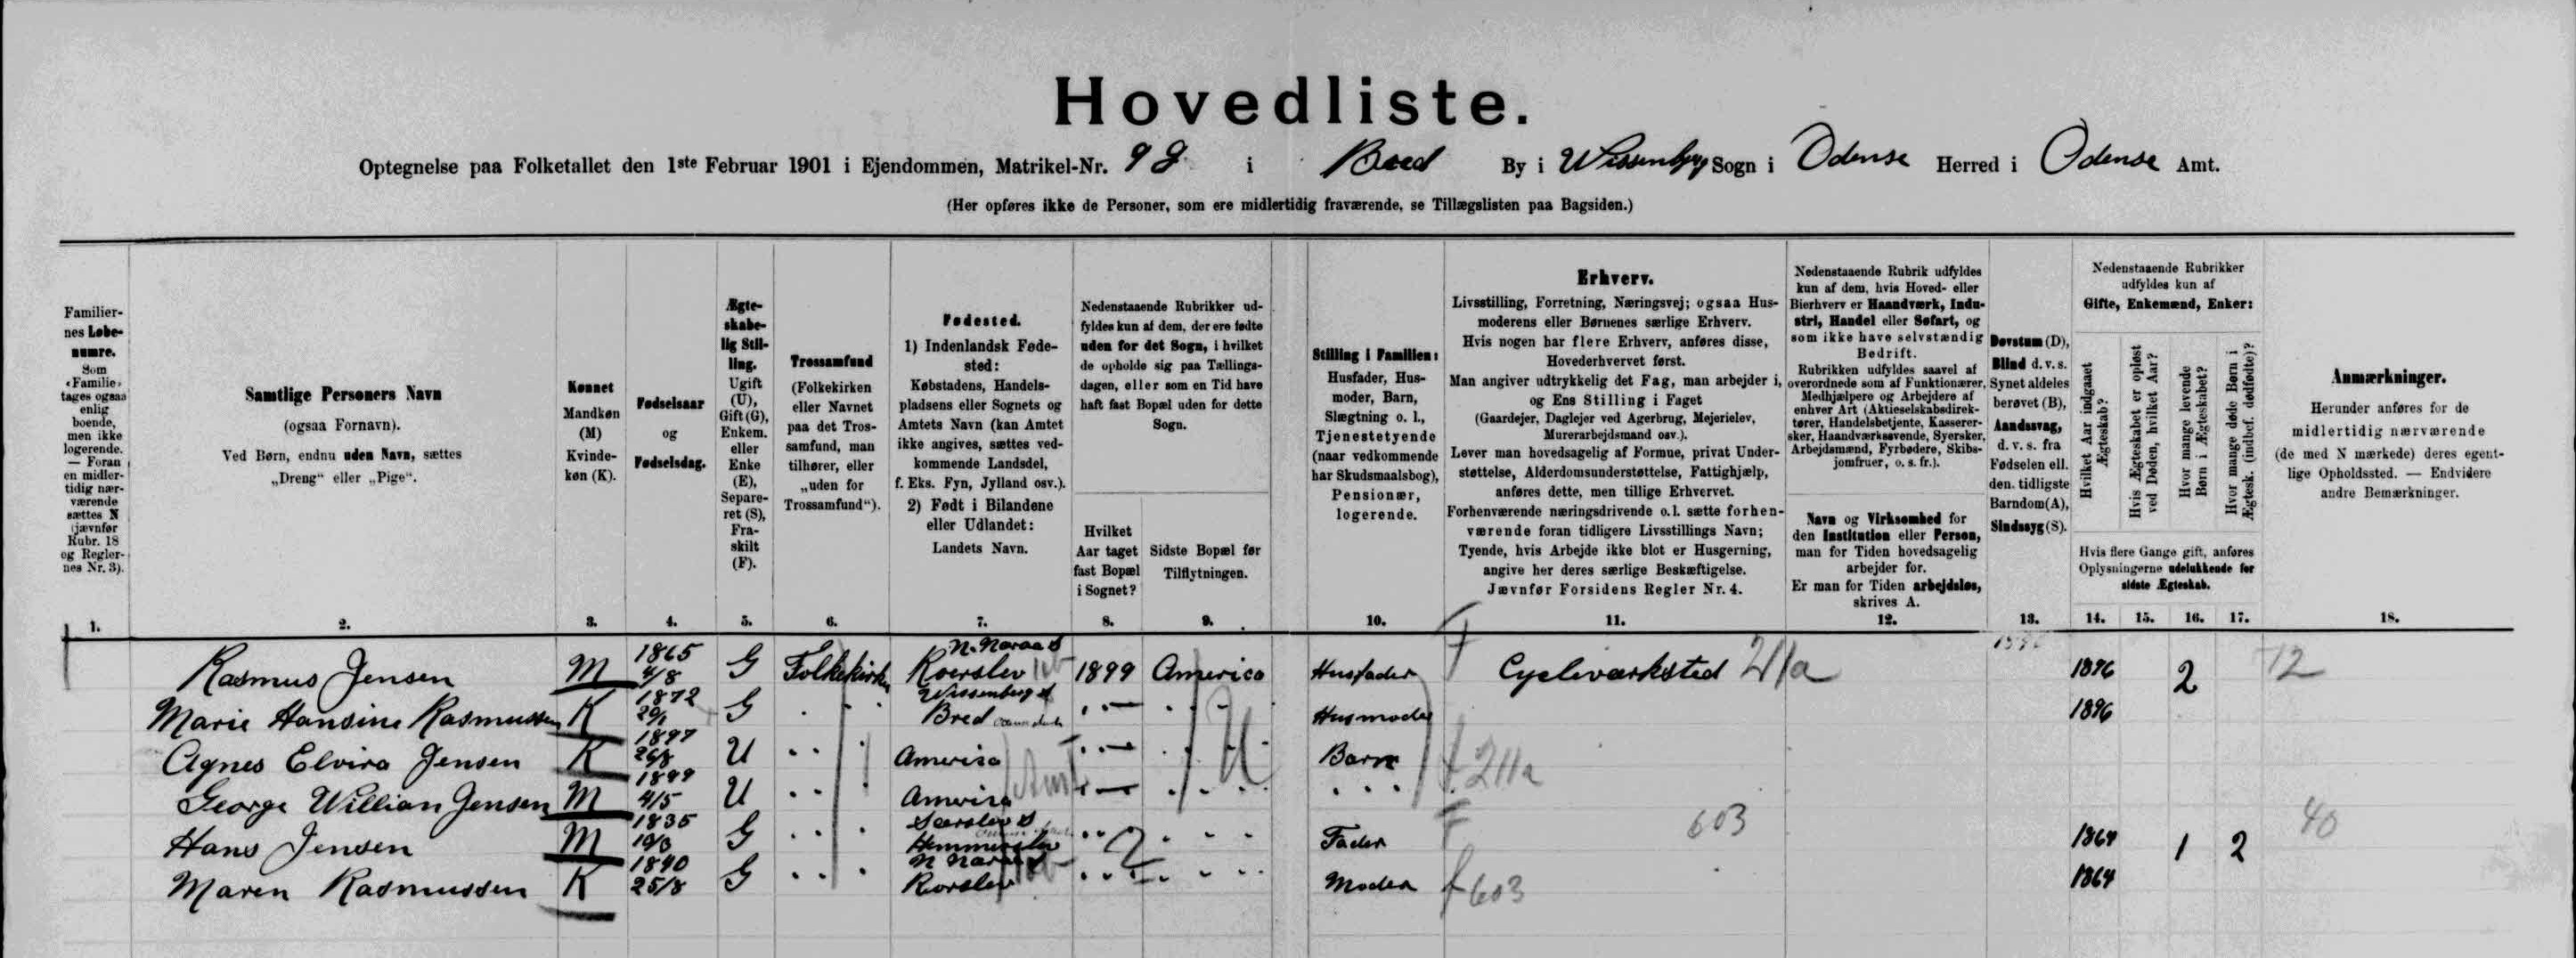 Hovedliste.
Optegnelse paa Folketallet den 1ste Februar 1901 i Ejendommen, Matrikel-Nr. 9 i Bred By i Wissenbjerg Sogn i Odense Herred i Odense Amt.
(Her opføres ikke de Personer, som ere midlertidig fraværende, se Tillægslisten paa Bagsiden.)
Familier-
nes Løbe-
numre.
Som
‹Familie›
tages ogsaa
enlig
boende,
men ikke
logerende.
— Foran
en midler-
tidig nær-
værende
sættes N
(jævnfør
Rubr. 18
og Regler-
nes Nr. 3).
1.
Samtlige Personers Navn
(ogsaa Fornavn).
Ved Børn, endnu uden Navn, sættes
„Dreng“ eller „Pige“.
2.
Kønnet
Mandkøn
(M)
Kvinde-
køn (K).
3.
Fødselsaar
og
Fødselsdag.
4.
Ægte-
skabe-
lig Stil-
ling.
Ugift
(U),
Gift (G),
Enkem.
eller
Enke
(E),
Separe-
ret (S),
Fra-
skilt
(F).
5.
Trossamfund
(Folkekirken
eller Navnet
paa det Tros-
samfund, man
tilhører, eller
„uden for
Trossamfund“).
6.
Fødested.
1) Indenlandsk Føde-
sted:
Købstadens, Handels-
pladsens eller Sognets og
Amtets Navn (kan Amtet
ikke angives, sættes ved-
kommende Landsdel,
f. Eks. Fyn, Jylland osv.).
2) Født i Bilandene
eller Udlandet:
Landets Navn.
7.
Nedenstaaende Rubrikker ud-
fyldes kun af dem, der ere fødte
uden for det Sogn, i hvilket
de opholde sig paa Tællings-
dagen, eller som en Tid have
haft fast Bopæl uden for dette
Sogn.
Hvilket
Aar taget
fast Bopæl
i Sognet?
8.
Sidste Bopæl før
Tilflytningen.
9.
Stilling i Familien:
Husfader, Hus-
moder, Barn,
Slægtning o. l.,
Tjenestetyende
(naar vedkommende
har Skudsmaalsbog),
Pensionær,
logerende.
10.
Erhverv.
Livsstilling, Forretning, Næringsvej; ogsaa Hus-
moderens eller Børnenes særlige Erhverv.
Hvis nogen har flere Erhverv, anføres disse,
Hovederhvervet først.
Man angiver udtrykkelig det Fag, man arbejder i,
og Ens Stilling i Faget
(Gaardejer, Daglejer ved Agerbrug, Mejerielev,
Murerarbejdsmand osv.).
Lever man hovedsagelig af Formue, privat Under-
støttelse, Alderdomsunderstøttelse, Fattighjælp,
anføres dette, men tillige Erhvervet.
Forhenværende næringsdrivende o.l. sætte forhen-
værende foran tidligere Livsstillings Navn;
Tyende, hvis Arbejde ikke blot er Husgerning,
angive her deres særlige Beskæftigelse.
Jævnfør Forsidens Regler Nr. 4.
11.
Nedenstaaende Rubrik udfyldes
kun af dem, hvis Hoved- eller
Bierhverv er Haandværk, Indu-
stri, Handel eller Søfart, og
som ikke have selvstændig
Bedrift.
Rubrikken udfyldes saavel af
overordnede som af Funktionærer,
Medhjælpere og Arbejdere af
enhver Art (Aktieselskabsdirek-
tører, Handelsbetjente, Kasserer-
sker, Haandværkssvende, Syersker,
Arbejdsmænd, Fyrbødere, Skibs-
jomfruer, o. s. fr.).
Navn og Virksomhed for
den Institution eller Person,
man for Tiden hovedsagelig
arbejder for.
Er man for Tiden arbejdsløs,
skrives A.
12.
Døvstum (D),
Blind d. v. s.
Synet aldeles
berøvet (B),
Aandssvag,
d. v. s. fra
Fødselen ell.
den. tidligste
Barndom (A),
Sindssyg (S).
13.
Nedenstaaende Rubrikker
udfyldes kun af
Gifte, Enkemænd, Enker:
Hvilket Aar indgaaet
Ægteskab?
Hvis Ægteskabet er opløst
ved Døden, hvilket Aar?
Hvor mange levende
Børn i Ægteskabet?
Hvor mange døde Børn i
Ægtesk. (indbef. dødfødte)?
Hvis flere Gange gift, anføres
Oplysningerne udelukkende for
sidste Ægteskab.
14. 15. 16. 17.
Anmærkninger.
Herunder anføres for de
midlertidig nærværende
(de med N mærkede) deres egent-
lige Opholdssted. — Endvidere
andre Bemærkninger.
18.
1 Rasmus Jensen M 1865 4/8 G Folkekirke N. Naraa S Roerslev 1899 America Husfader Cycleværksted 211a 1896 2 12
Marie Hansine Rasmussen K 1872 G Wissenberg S Bred Husmoder 1896
Agnes Elvira Jensen K 1897 26/8 U America Barn 211a
George Willian Jensen M 1899 4/5 U America
Hans Jensen M 1835 G Særslev S Hemmerslev Fader 603 1864 1 2 40
Maren Rasmussen K 1840 25/8 G N Naraa S Rorslev Moder 603 1864